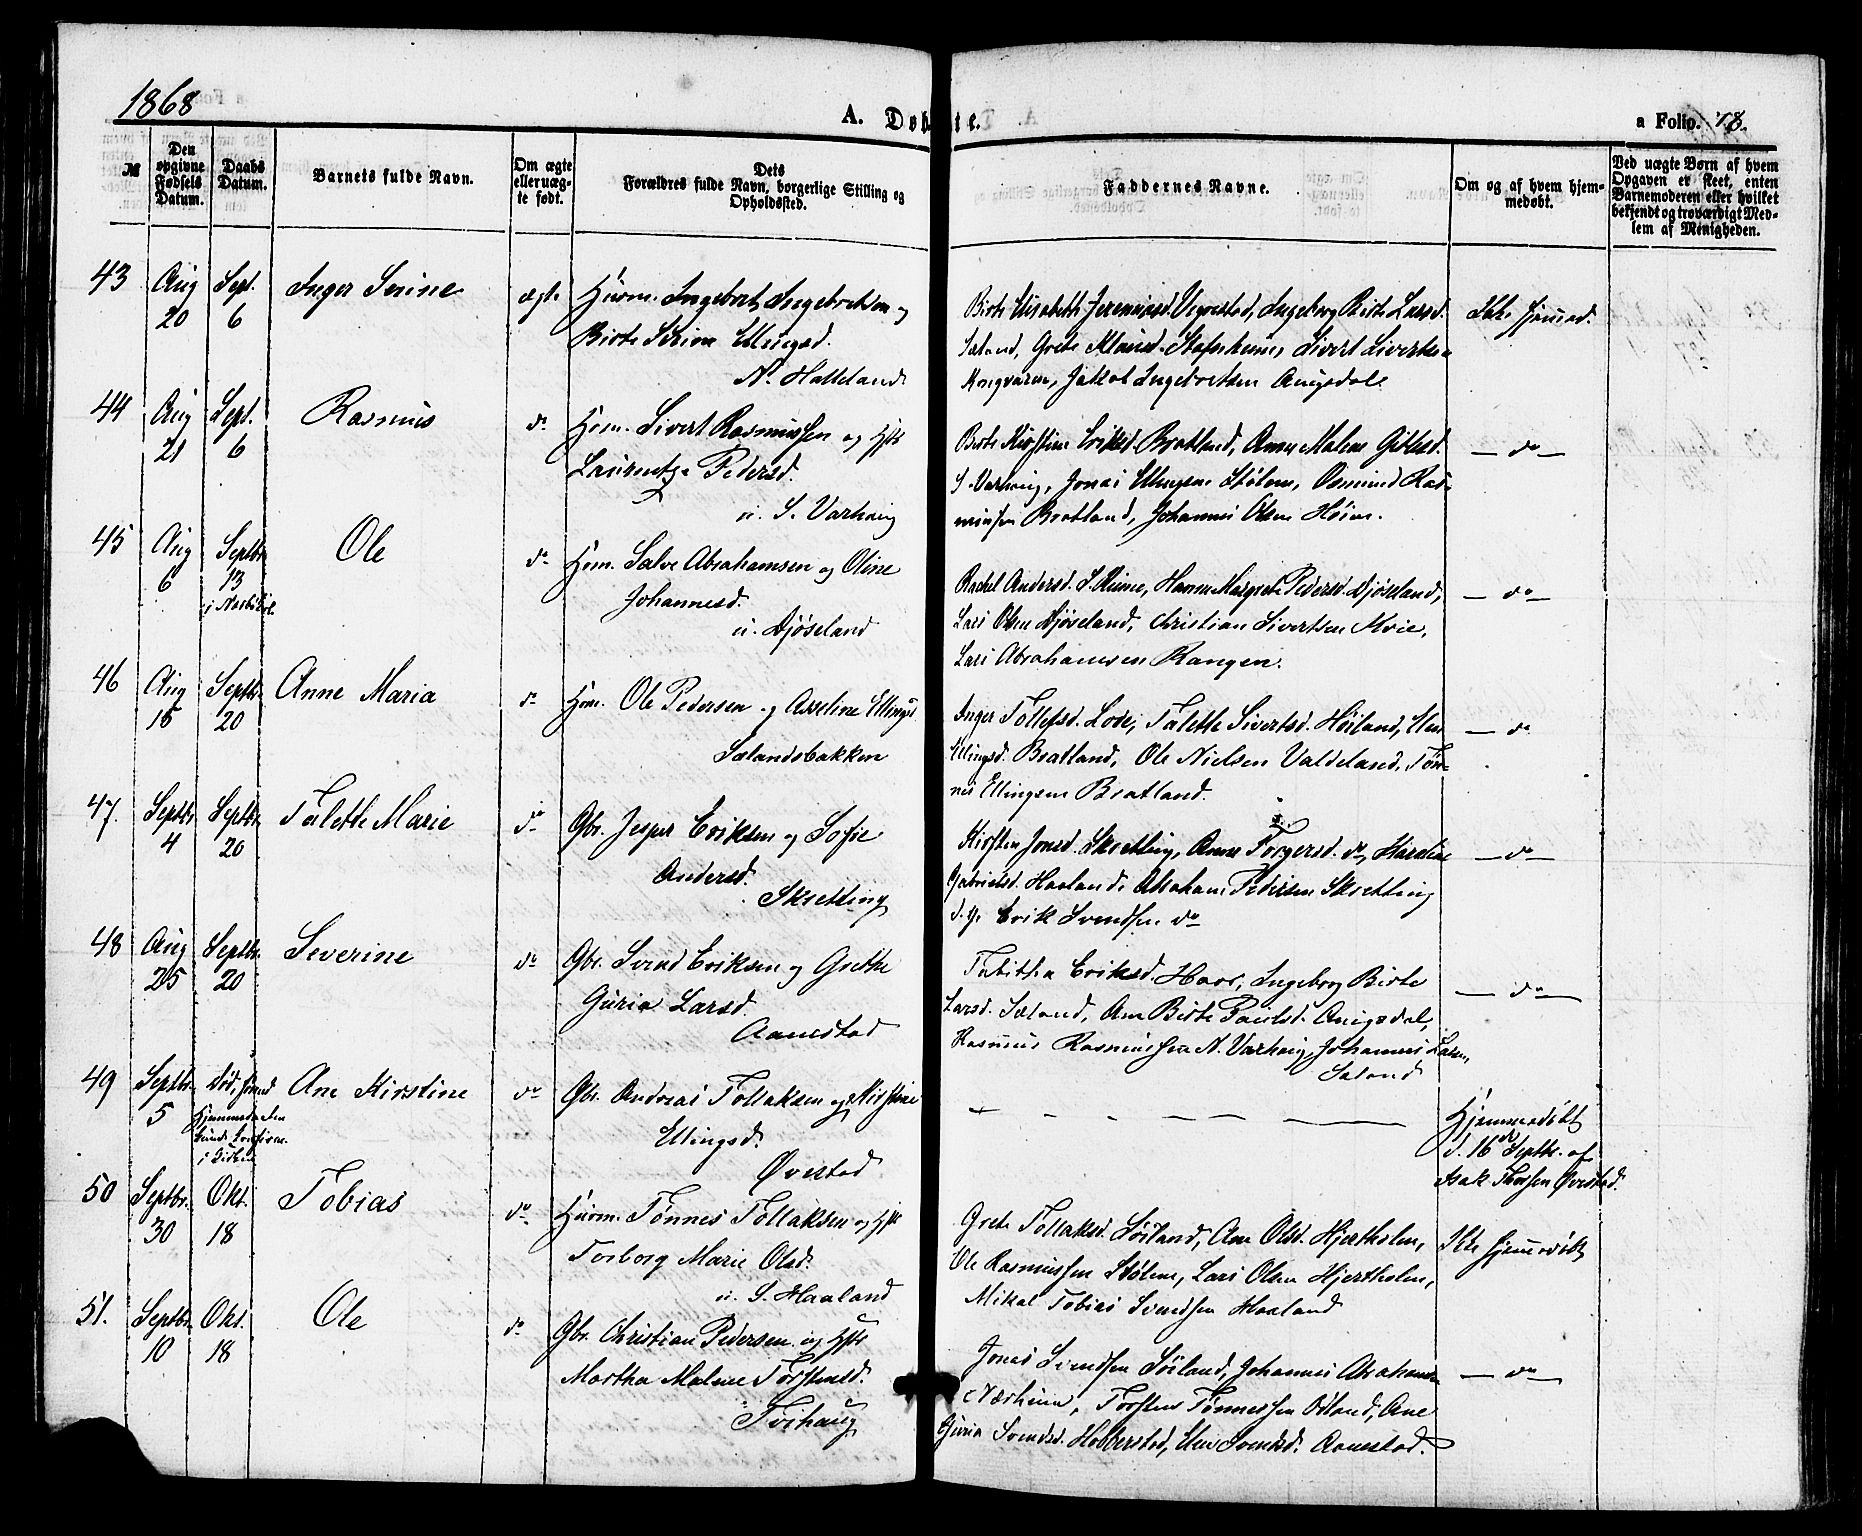 1868
A. Døbte.
a Folio. 18.
№
Den opgivne Fødsels Datum.
Daabs Datum.
Barnets fulde Navn.
Om ægte eller uægte født.
Dets Forældres fulde Navn, borgerlige Stilling og Opholdssted.
Faddernes Navne.
Om og af hvem hjemmedøbt.
Ved uægte Børn af hvem Opgaven er skeet, enten Barnemoderen eller hvilket bekjendt og troværdigt Medlem af Menigheden.
43 Aug 20 Sept. 6 Inger Serine ægte Huusm. Ingebret Ingebretsen og
Birte Serine Ellingsd.
N. Halleland
Birte Elisabeth Jeremiasd. Vigrestad, Ingeborg Birte Larsd.
Sæland, Grete Klausd. Stafnheim, Sivert Sivertsen
Kongvarn, Jakob Ingebretsen Aniksdal
Ikke hjemmed.
44 Aug 21 Sept. 6 Rasmus do Huusm. Sivert Rasmussen og Hst.
Laurentze Pedersd.
u. S. Varhaug
Birte Kirstine Eriksd. Bratland, Anne Malene Gitlesd.
S. Varhaug, Jonas Ellingsen Stølen, Osmund Ras-
mussen Bratland, Johannes Olsen Høien.
do
45 Aug 6 Septbr. 13 i Nærbø K. Ole do Huusm. Salve Abrahamsen og Oline
Johannesd.
u. Djøseland
Rachel Andersd. S. Reime, Hanne Margrete Pedersd. Djøseland,
Lars Olsen Djøseland, Christian Sivertsen Moie,
Lars Abrahamsen Rangen.
do
46 Aug 15 Septbr. 20 Anne Maria do Huusm. Ole Pedersen og Asseline Ellingsd
Sælandsbakken
Inger Tollefsd. Lode, Talette Sivertsd. Høiland, Elen
Ellingsd. Bratland, Ole Nielsen Valdeland, Tøn-
nes Ellingsen Bratland.
do
47. Septbr. 4 Septbr. 20 Talette Marie do Gbr. Jesper Eriksen og Sofie
Andersd.
Skretting
Kirsten Jonsd. Skretting, Anne Torgersd. do, Karoline
Gabrielsd. Haaland, Abraham Pedersen Skretting
d. y. Erik Svendsen do
do
48 Aug 25 Septbr. 20 Severine do Gbr. Svend Eriksen og Grethe
Guria Larsd.
Aanestad
Tabitha Eriksd. Haar, Ingeborg Birte
Larsd. Sæland, Ane Birte Paulsd. Anigsdal,
Rasmus Rasmussen N. Varhaug, Johannes Larsen,
Sæland
do
49 Septbr. 5 Ane Kirstine do Gbr. Andreas Tollaksen og Kirstine
Ellingsd.
Øvestad
Hjemmedøbt
d. 16de Septbr. af
Isak Thorsen Øvestad.
50 Septbr. 30 Okt. 18 Tobias do Huusm. Tønnes Tollaksen og Hst
Torborg Marie Olsd.
u. S. Haaland
Grete Tollaksd. Søiland, Ane Olsd. Hjertholen,
Ole Rasmussen Stølene, Lars Olsen Hjertholen,
Mikal Tobias Svendsen Haaland
Ikke hjemmedøbt
51. Septbr. 10 Okt. 18 Ole do Gbr. Christian Pedersen og Hst
Martha Malene Torstensd.
Tvihaug
Jonas Svendsen Søiland, Johannes Abrahamsen
Nærheim, Torsten Tønnessen Ødland, Ane
Guria Svendsd. Hobberstad, Elen Svendsd. Aanestad.
do